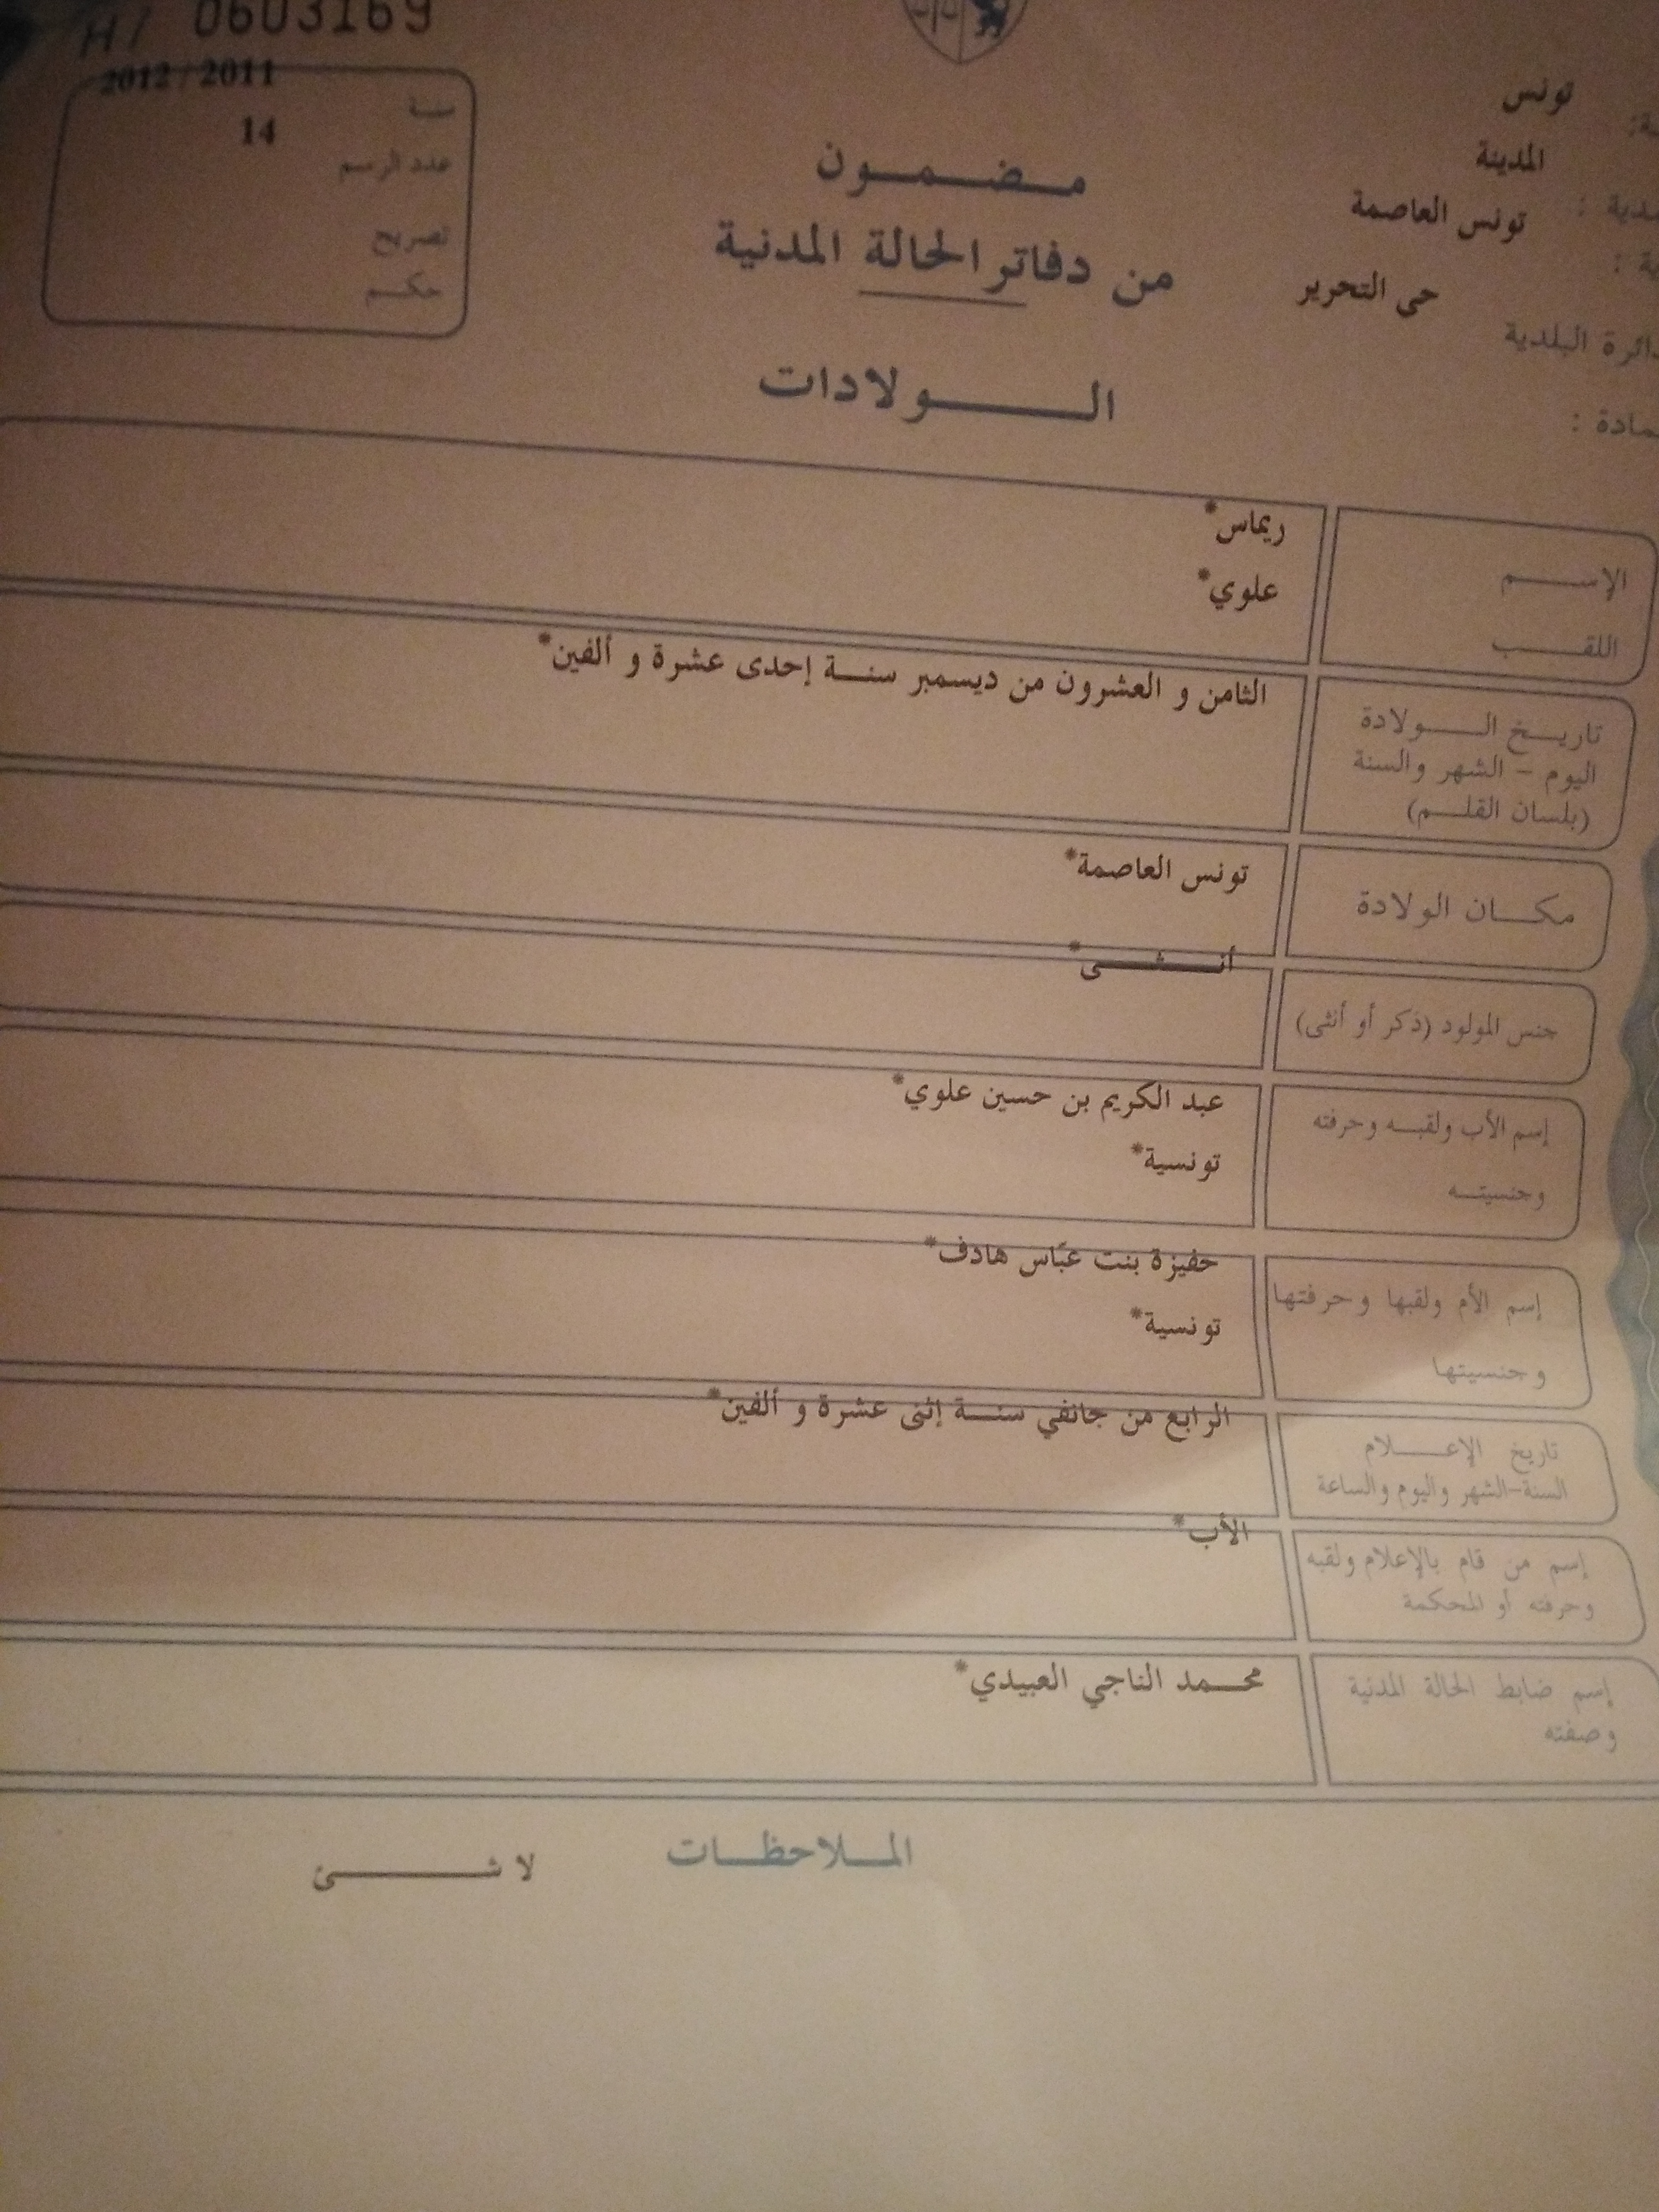 H/ 0603169
2012 / 2011
سنة
14
عدد الرسم
تصريح
حكم
تونس
المدينة
تونس العاصمة
حى التحرير
دائرة البلدية
مضمون
من دفاتر الحالة المدنية
الولادات
الإسم
ريماس*
اللقب
علوي*
تاريخ الولادة
اليوم - الشهر والسنة
(بلسان القلم)
الثامن و العشرون من ديسمبر سنة إحدى عشرة و ألفين*
مكان الولادة
تونس العاصمة*
جنس المولود (ذكر أو أنثى)
أنثى*
إسم الأب ولقبه وحرفته
وجنسيته
عبد الكريم بن حسين علوي*
تونسية*
إسم الأم ولقبها وحرفتها
وجنسيتها
حفيزة بنت عبّاس هادف*
تونسية*
تاريخ الإعلام
السنة-الشهر واليوم والساعة
الرابع من جانفي سنة إثنى عشرة و ألفين*
إسم من قام بالإعلام ولقبه
وحرفته أو المحكمة
الأب*
إسم ضابط الحالة المدنية
وصفته
محمد الناجي العبيدي*
الملاحظات
لا شئ